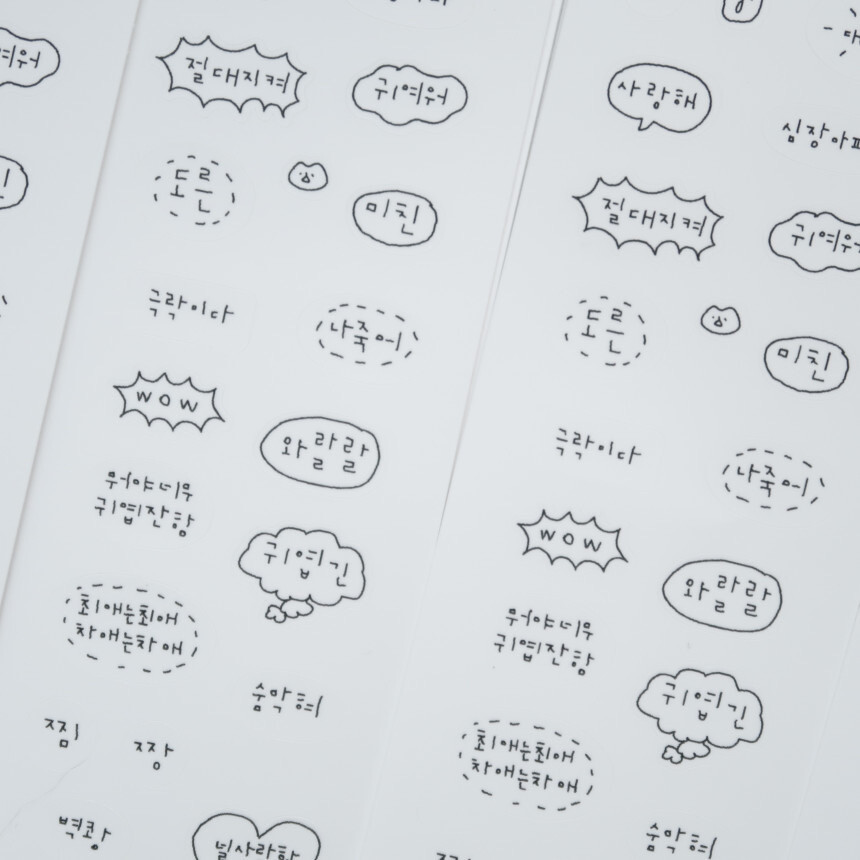 절대지켜
귀여워
도른
미친
극락이다
나죽어
WOW
와랄랄
뭐야너무
귀엽잔항
귀엽긴
최애는최애
차애는차애
숨막혀
찜
짱
벽쾅
널사랑항
사랑해
절대지켜
도른
미친
극락이다
나죽어
WOW
와랄랄
뭐야너무
귀엽잔항
귀엽긴
최애는최애
차애는차애
숨막혀